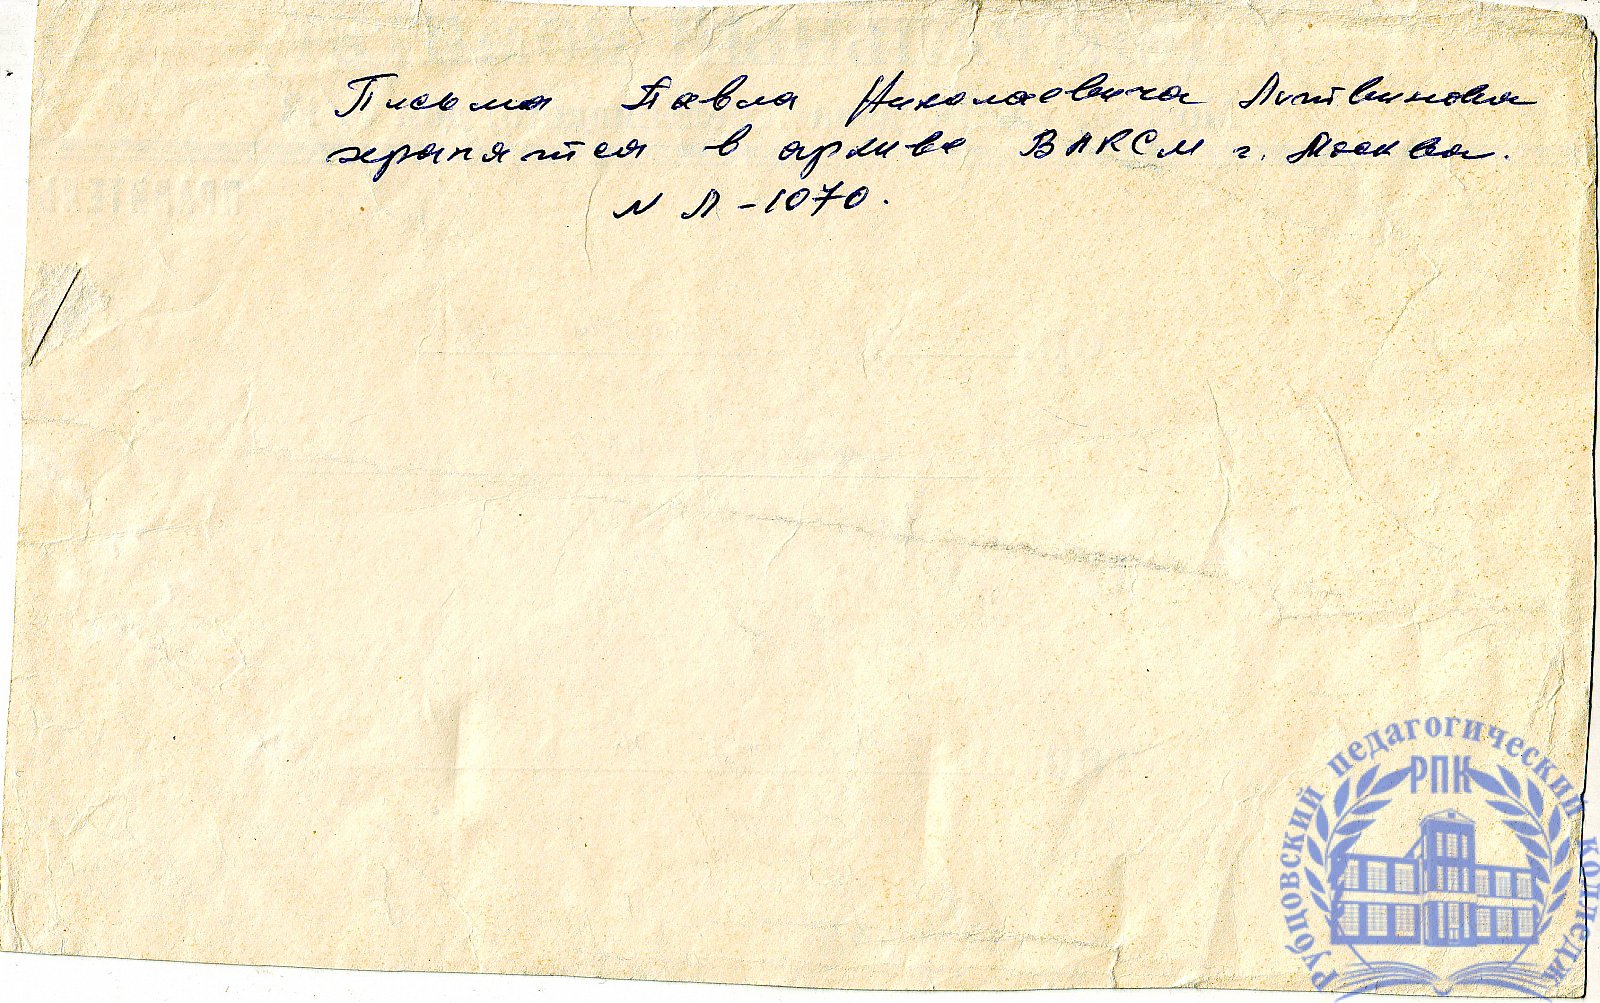 Письма Павла Николаевича Литвинова
хранятся в архиве ВЛКСМ г. Москва.
№ Л-1070.
Рубцовский педагогический колледж
РПК